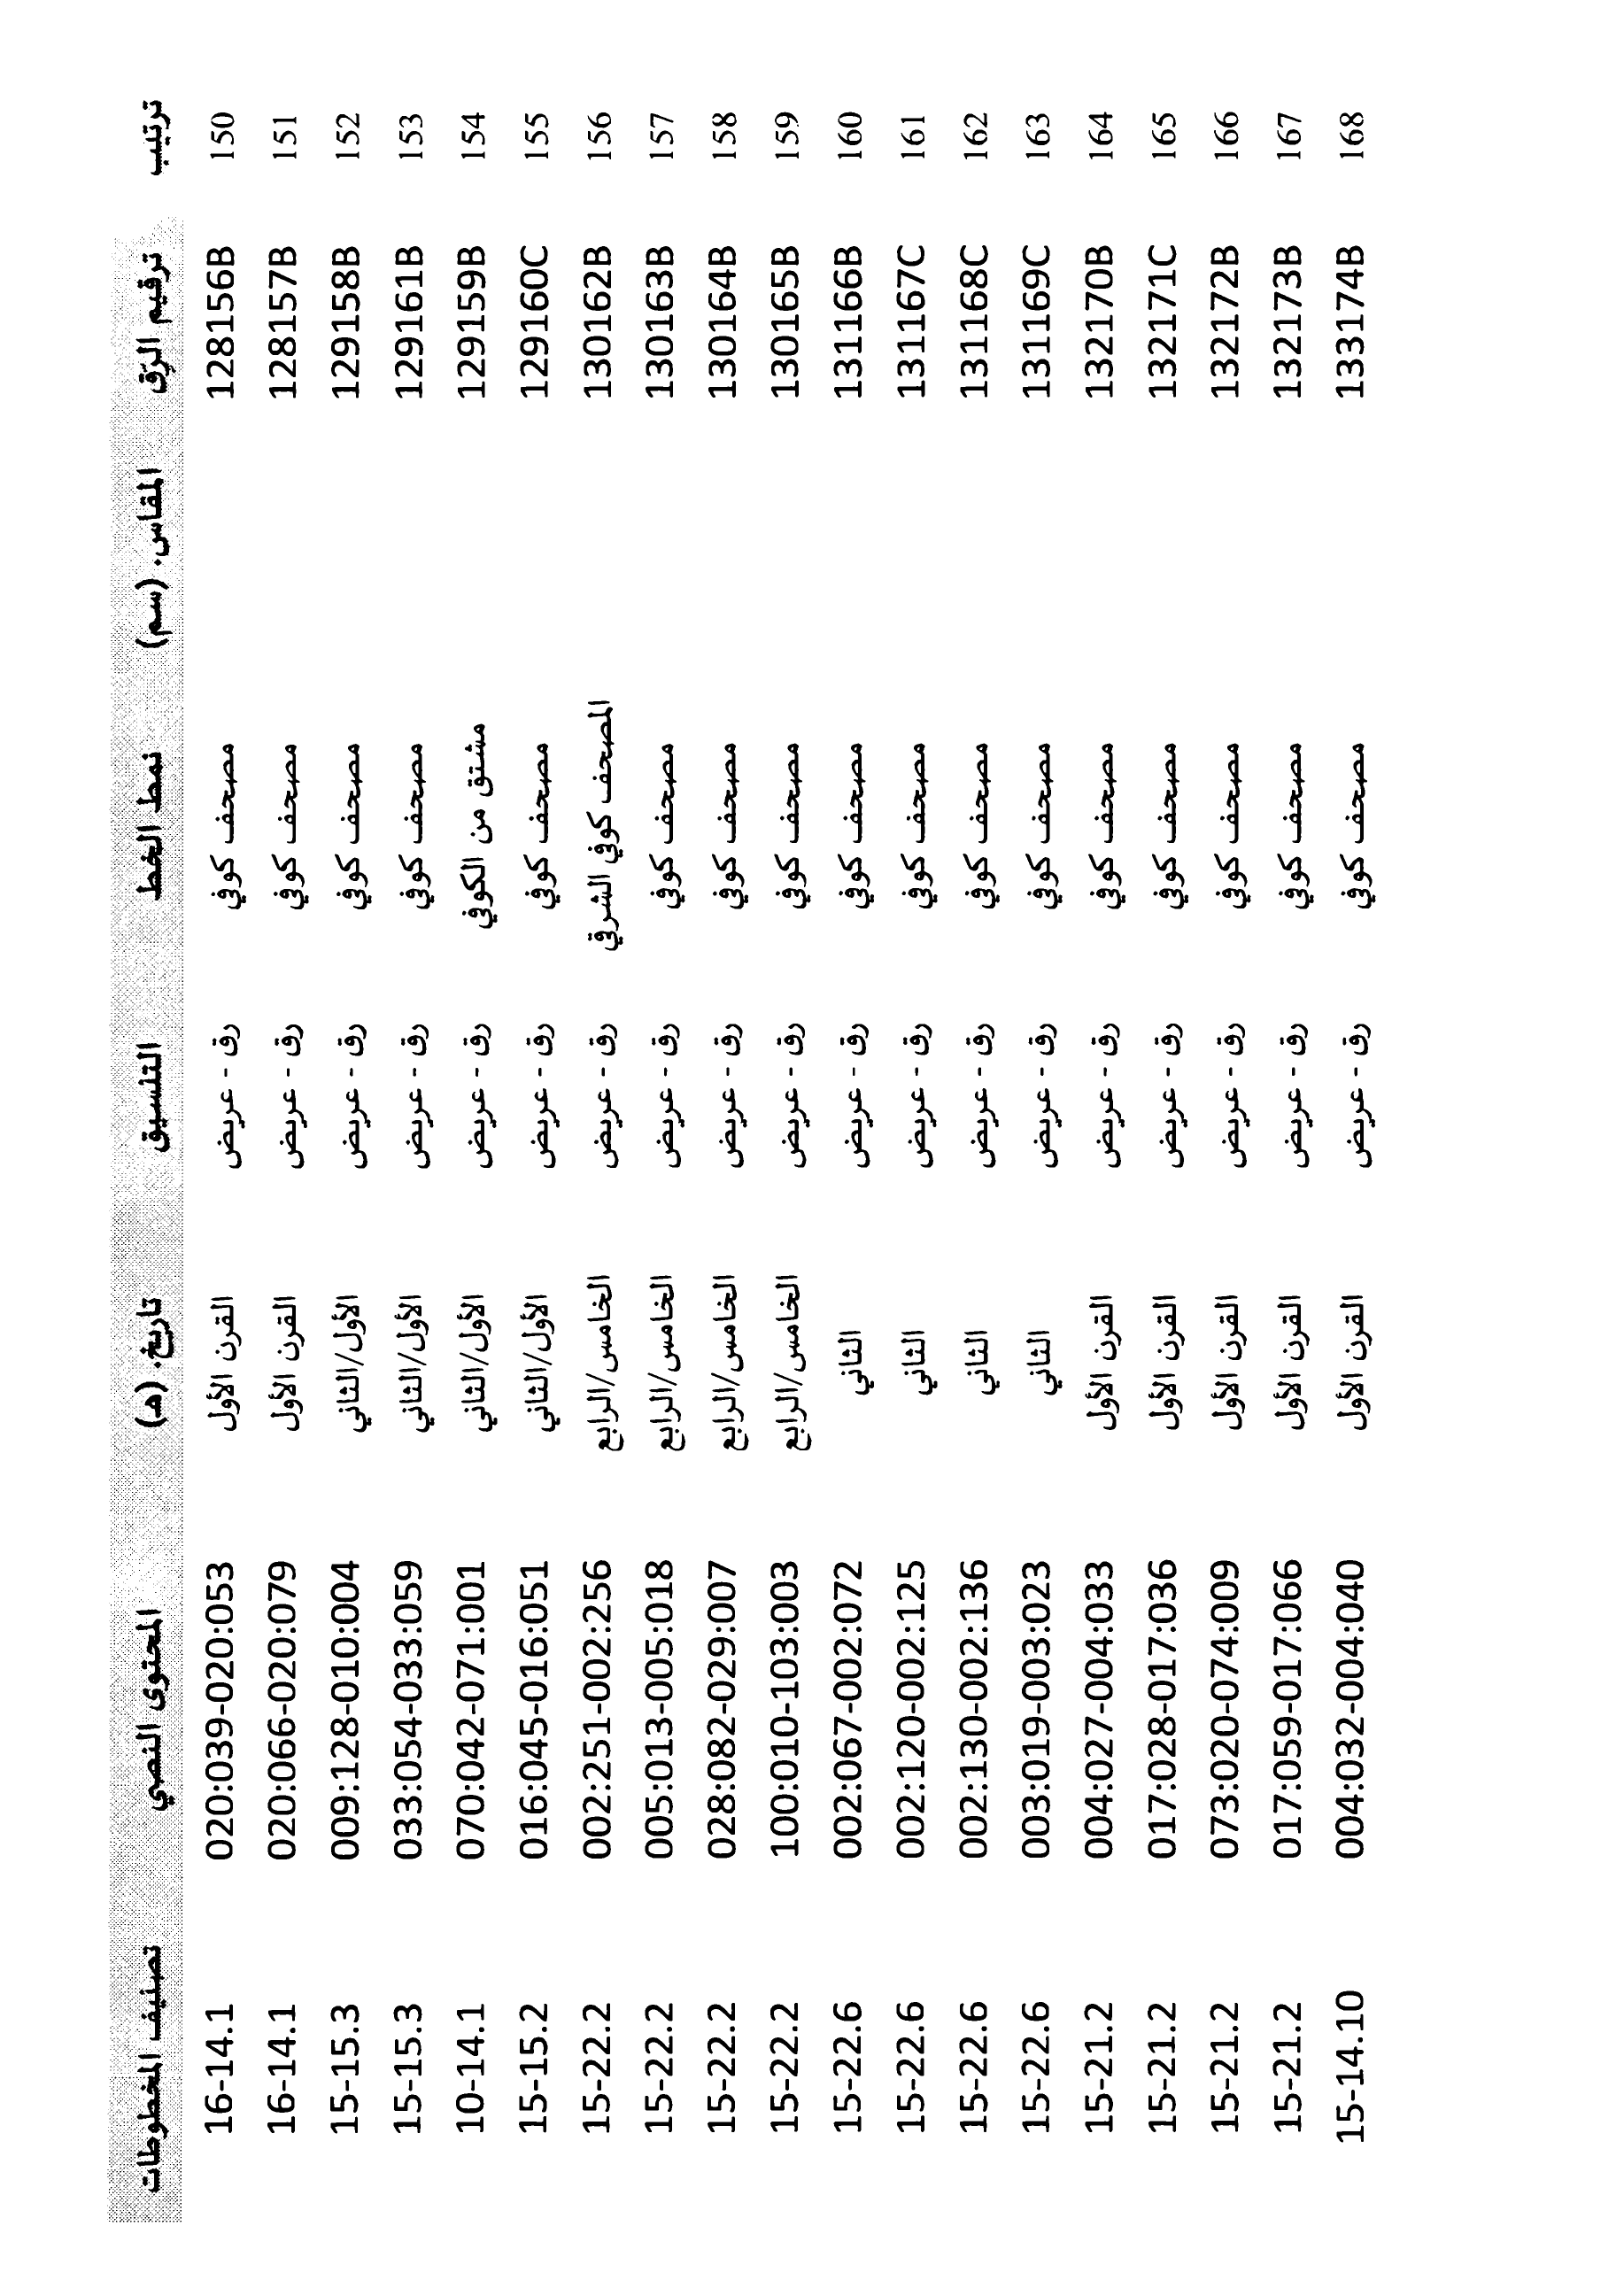 ترتيب ترقيم الرَّق المقاس. (سم) نمط الخط التنسيق تاريخ. (هـ) المحتوى النصي تصنيف المخطوطات
150 128156B مصحف كوفي رق - عريض القرن الأول 020:039-020:053 16-14.1
151 128157B مصحف كوفي رق - عريض القرن الأول 020:066-020:079 16-14.1
152 129158B مصحف كوفي رق - عريض الأول/الثاني 009:128-010:004 15-15.3
153 129161B مصحف كوفي رق - عريض الأول/الثاني 033:054-033:059 15-15.3
154 129159B مشتق من الكوفي رق - عريض الأول/الثاني 070:042-071:001 10-14.1
155 129160C مصحف كوفي رق - عريض الأول/الثاني 016:045-016:051 15-15.2
156 130162B المصحف كوفي الشرقي رق - عريض الخامس/الرابع 002:251-002:256 15-22.2
157 130163B مصحف كوفي رق - عريض الخامس/الرابع 005:013-005:018 15-22.2
158 130164B مصحف كوفي رق - عريض الخامس/الرابع 028:082-029:007 15-22.2
159 130165B مصحف كوفي رق - عريض الخامس/الرابع 100:010-103:003 15-22.2
160 131166B مصحف كوفي رق - عريض الثاني 002:067-002:072 15-22.6
161 131167C مصحف كوفي رق - عريض الثاني 002:120-002:125 15-22.6
162 131168C مصحف كوفي رق - عريض الثاني 002:130-002:136 15-22.6
163 131169C مصحف كوفي رق - عريض الثاني 003:019-003:023 15-22.6
164 132170B مصحف كوفي رق - عريض القرن الأول 004:027-004:033 15-21.2
165 132171C مصحف كوفي رق - عريض القرن الأول 017:028-017:036 15-21.2
166 132172B مصحف كوفي رق - عريض القرن الأول 073:020-074:009 15-21.2
167 132173B مصحف كوفي رق - عريض القرن الأول 017:059-017:066 15-21.2
168 133174B مصحف كوفي رق - عريض القرن الأول 004:032-004:040 15-14.10